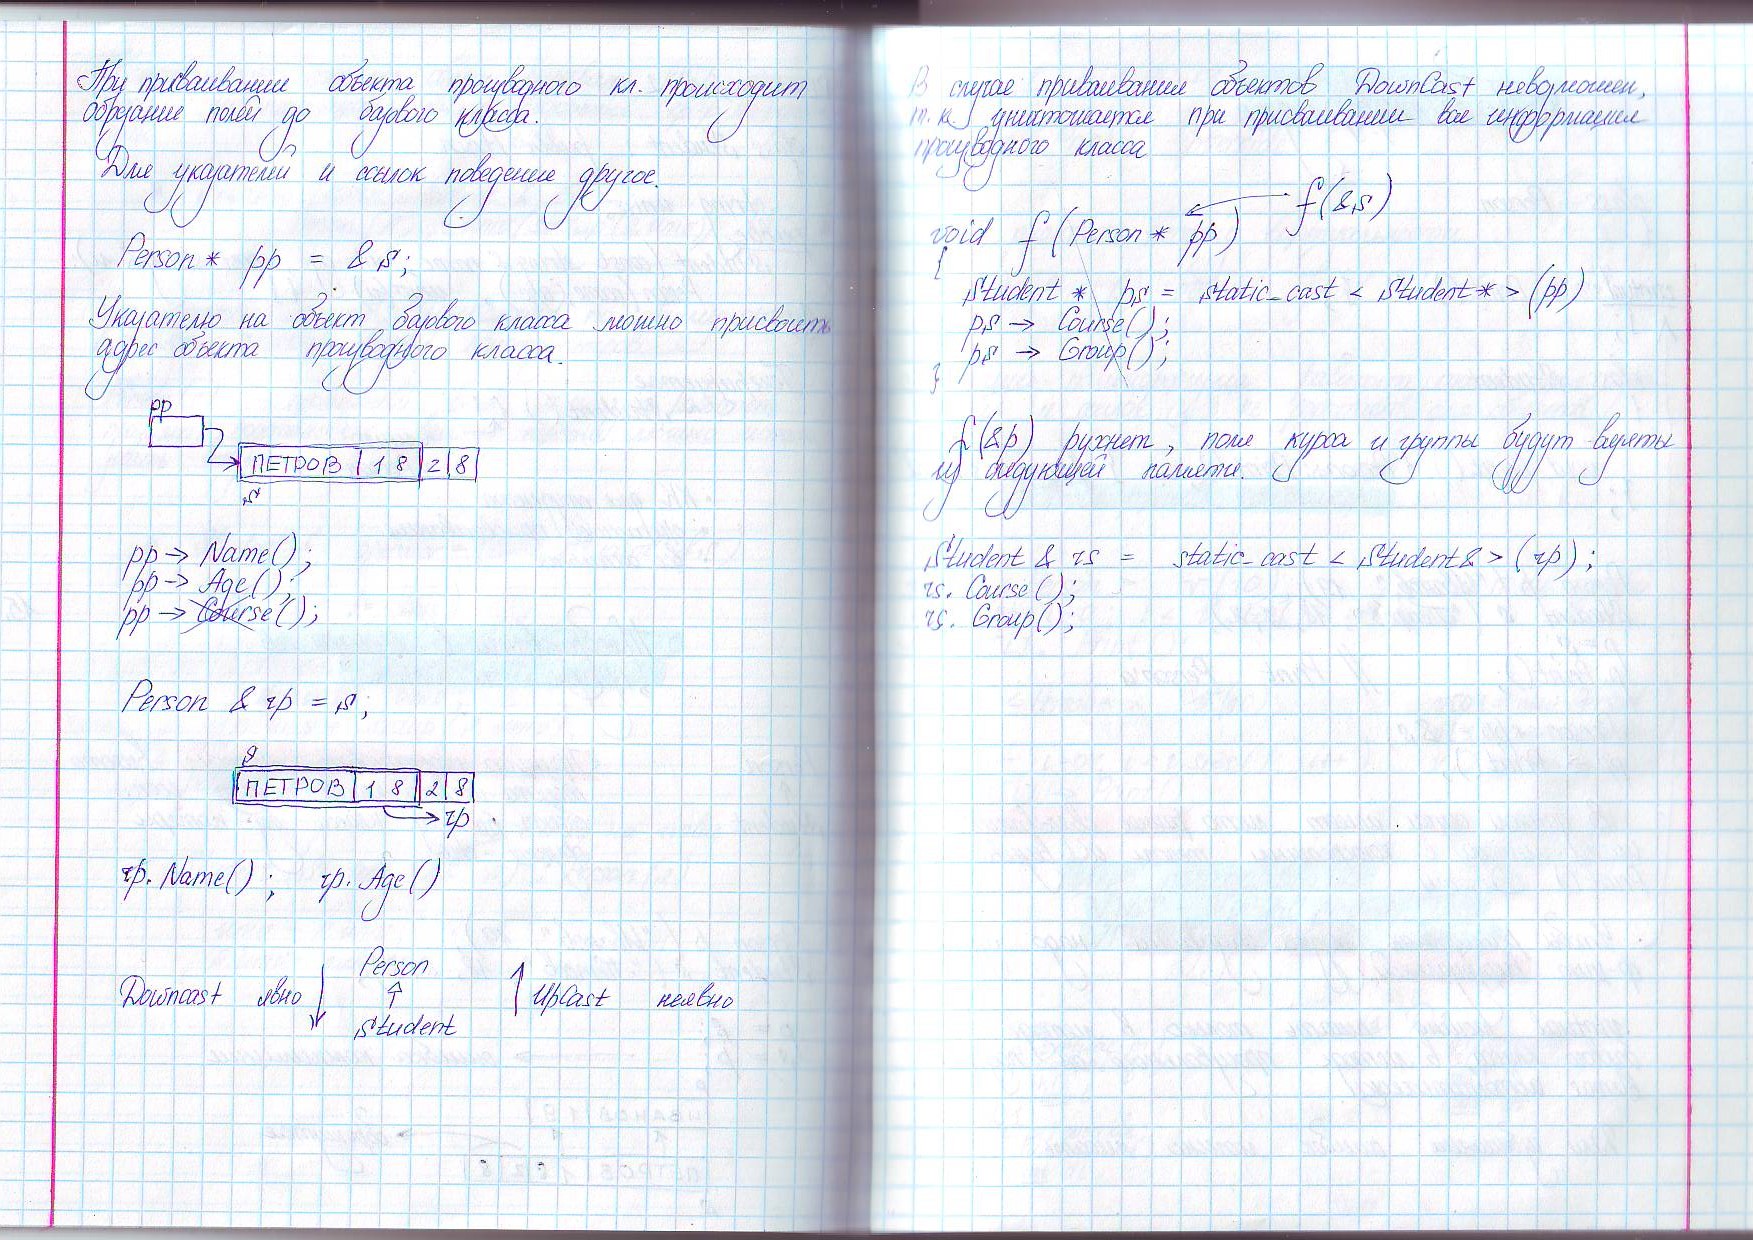 При присваивании объекта производного кл. происходит
обрезание полей до базового класса.
Для указателей и ссылок поведение другое.
Person * pp = & s;
Указателю на объект базового класса можно присвоить
адрес объекта производного класса.
pp
ПЕТРОВ 18 2 8
s
pp -> Name();
pp -> Age();
pp -> Course();
Person & rp = s;
s
ПЕТРОВ 18 2 8
rp
rp. Name(); rp. Age()
Person
Downcast явно ↓ ↑ ↑ UpCast неявно
Student
В случае присваивания объектов DownCast невозможен,
т.к. уничтожается при присваивании вся информация
производного класса
f(&s)
void f(Person * pp)
{
Student * ps = static_cast < Student * > (pp)
ps -> Course();
ps -> Group();
}
f(&p) рухнет, поля курса и группы будут взяты
из следующей памяти.
Student & rs = static_cast < Student & > (rp);
rs. Course();
rs. Group();